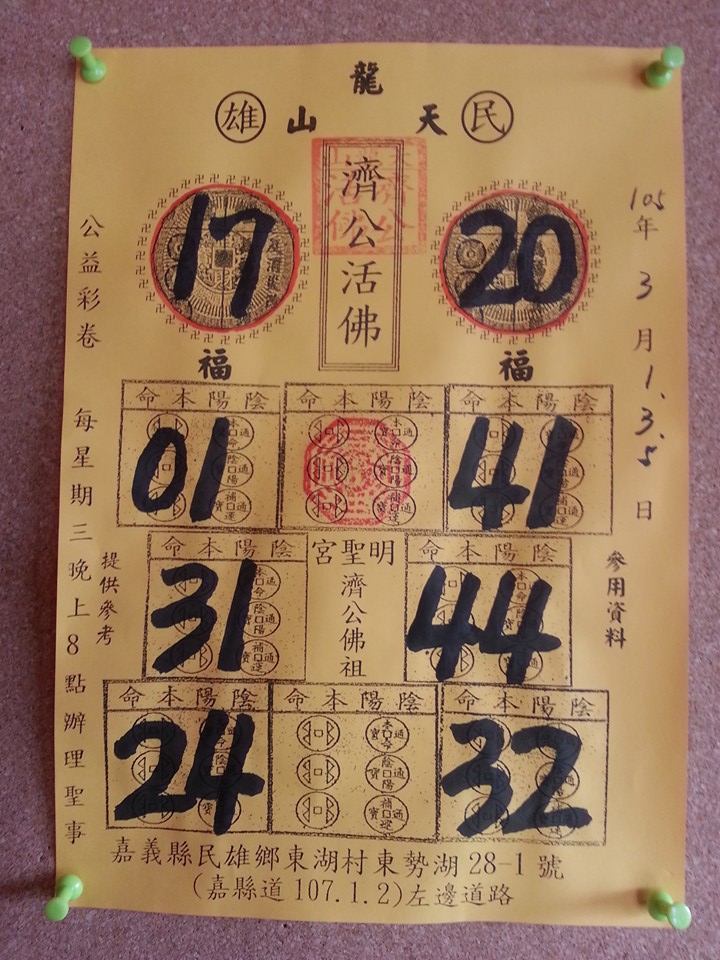 龍
雄 山 天 民
濟公活佛
17 20
福 福
105年3月1.3.5日
公益彩卷 每星期三晚上8點辦理聖事
提供參考
參用資料
命本陽陰 命本陽陰 命本陽陰
01 41
命本陽陰 宮聖明 命本陽陰
濟公佛祖
31 44
命本陽陰 命本陽陰 命本陽陰
24 32
嘉義縣民雄鄉東湖村東勢湖28-1號
(嘉縣道107.1.2)左邊道路